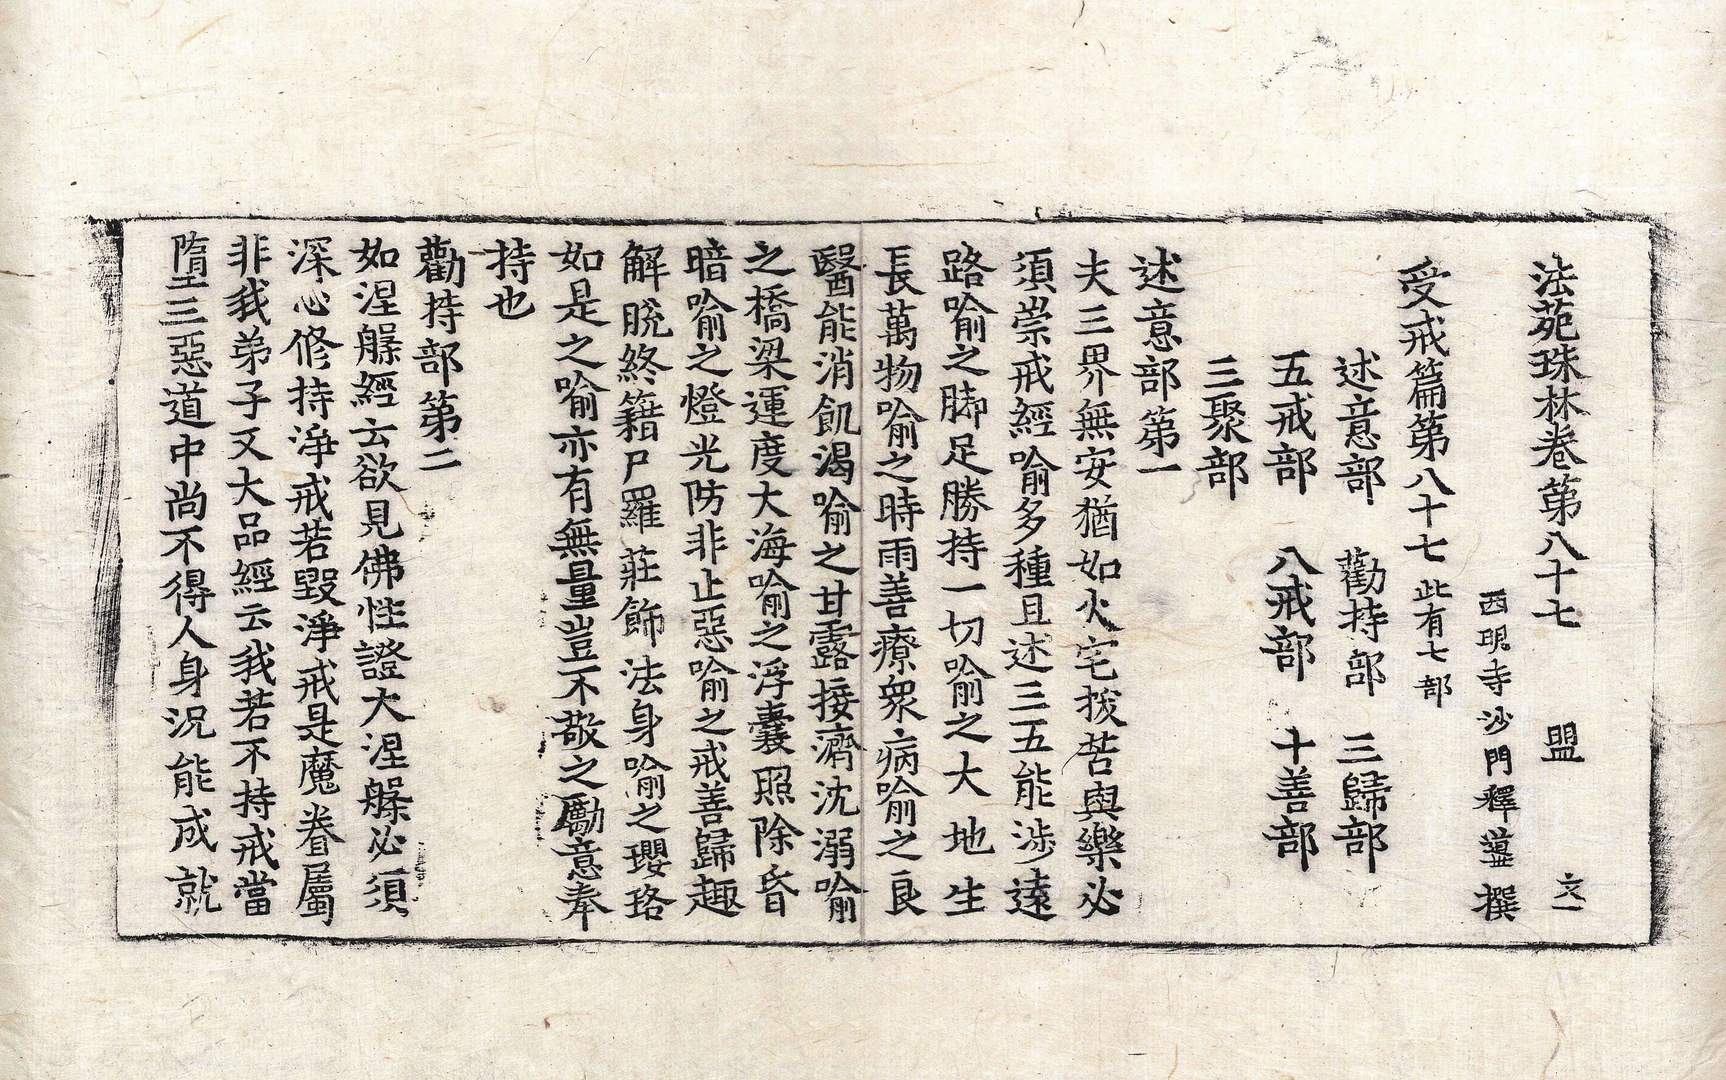 法苑珠林卷第八十七　盟　文一
西明寺沙門釋　撰
受戒篇第八十七此有七部
述意部　勸持部　三歸部
五戒部　八戒部　十善部
三聚部
述意部第一
夫三界無安猶如火宅拔苦與樂必
須崇戒經喻多種且述三五能涉遠
路喻之脚足勝持一切喻之大地生
長萬物喻之時雨善療衆病喻之良
醫能消飢渴喻之甘露接濟沈溺喻
之橋梁運度大海喻之浮囊照除昏
暗喻之燈光防非止惡喻之戒善歸趣
解脫終籍尸羅莊飾法身喻之瓔珞
如是之喻亦有無量豈不敬之勵意奉
持也
勸持部第二
如涅槃經云欲見佛性證大涅槃必須
深心修持淨戒若毀淨戒是魔眷屬
非我弟子又大品經云我若不持戒當
墮三惡道中尚不得人身況能成就